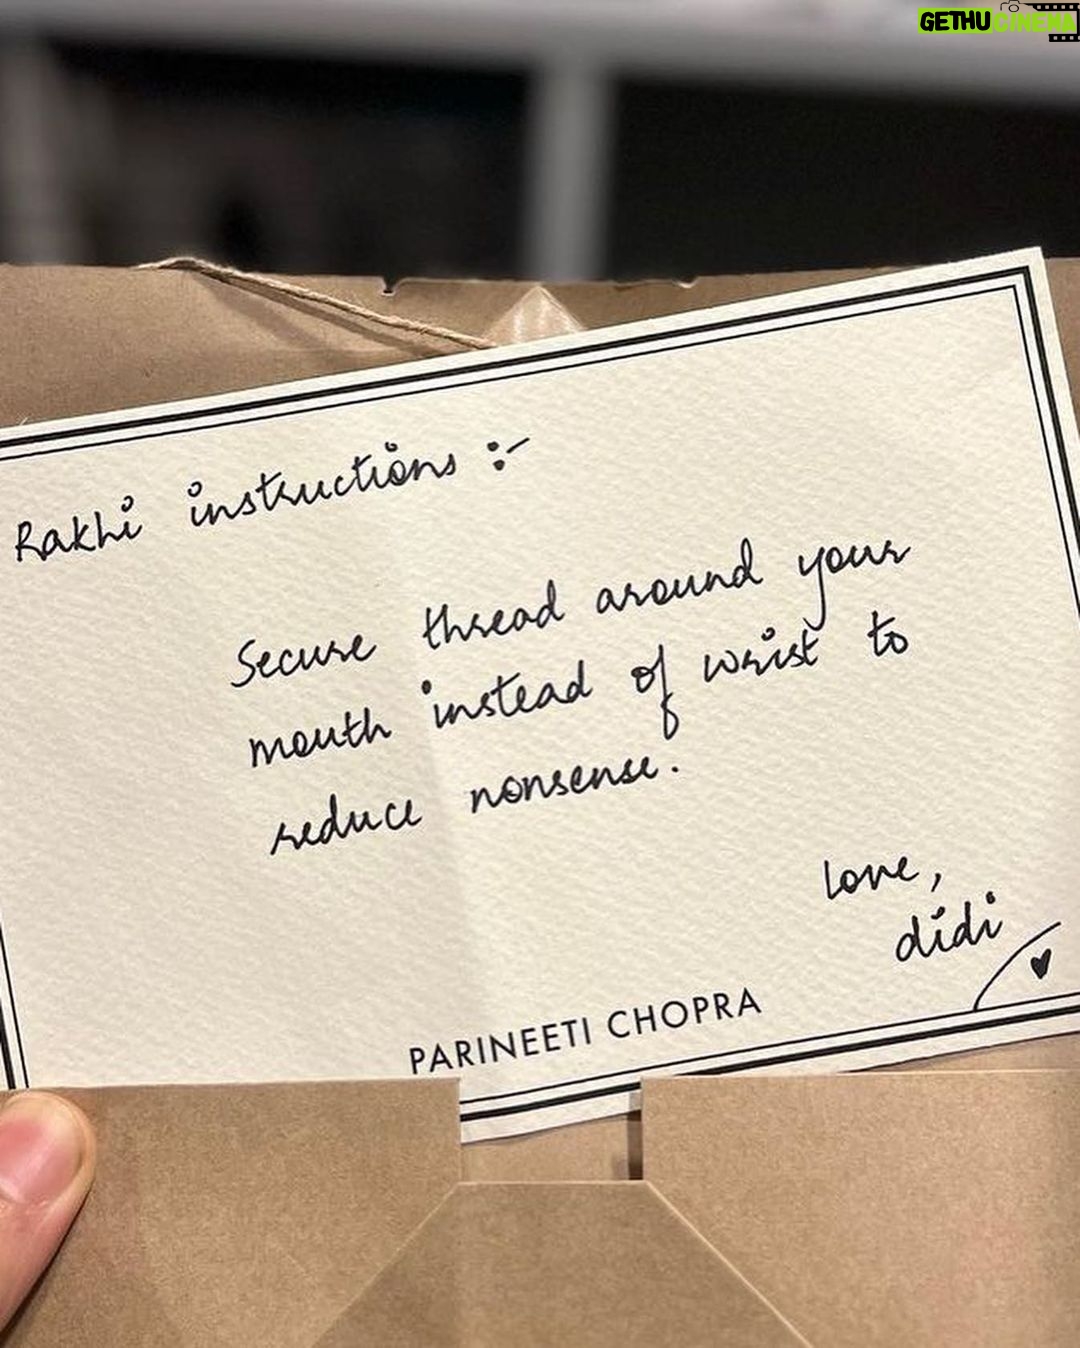 GETHUCINEMA
Rakhi instructions :-
Secure thread around your
mouth instead of wrist to
reduce nonsense.
love,
didi
PARINEETI CHOPRA